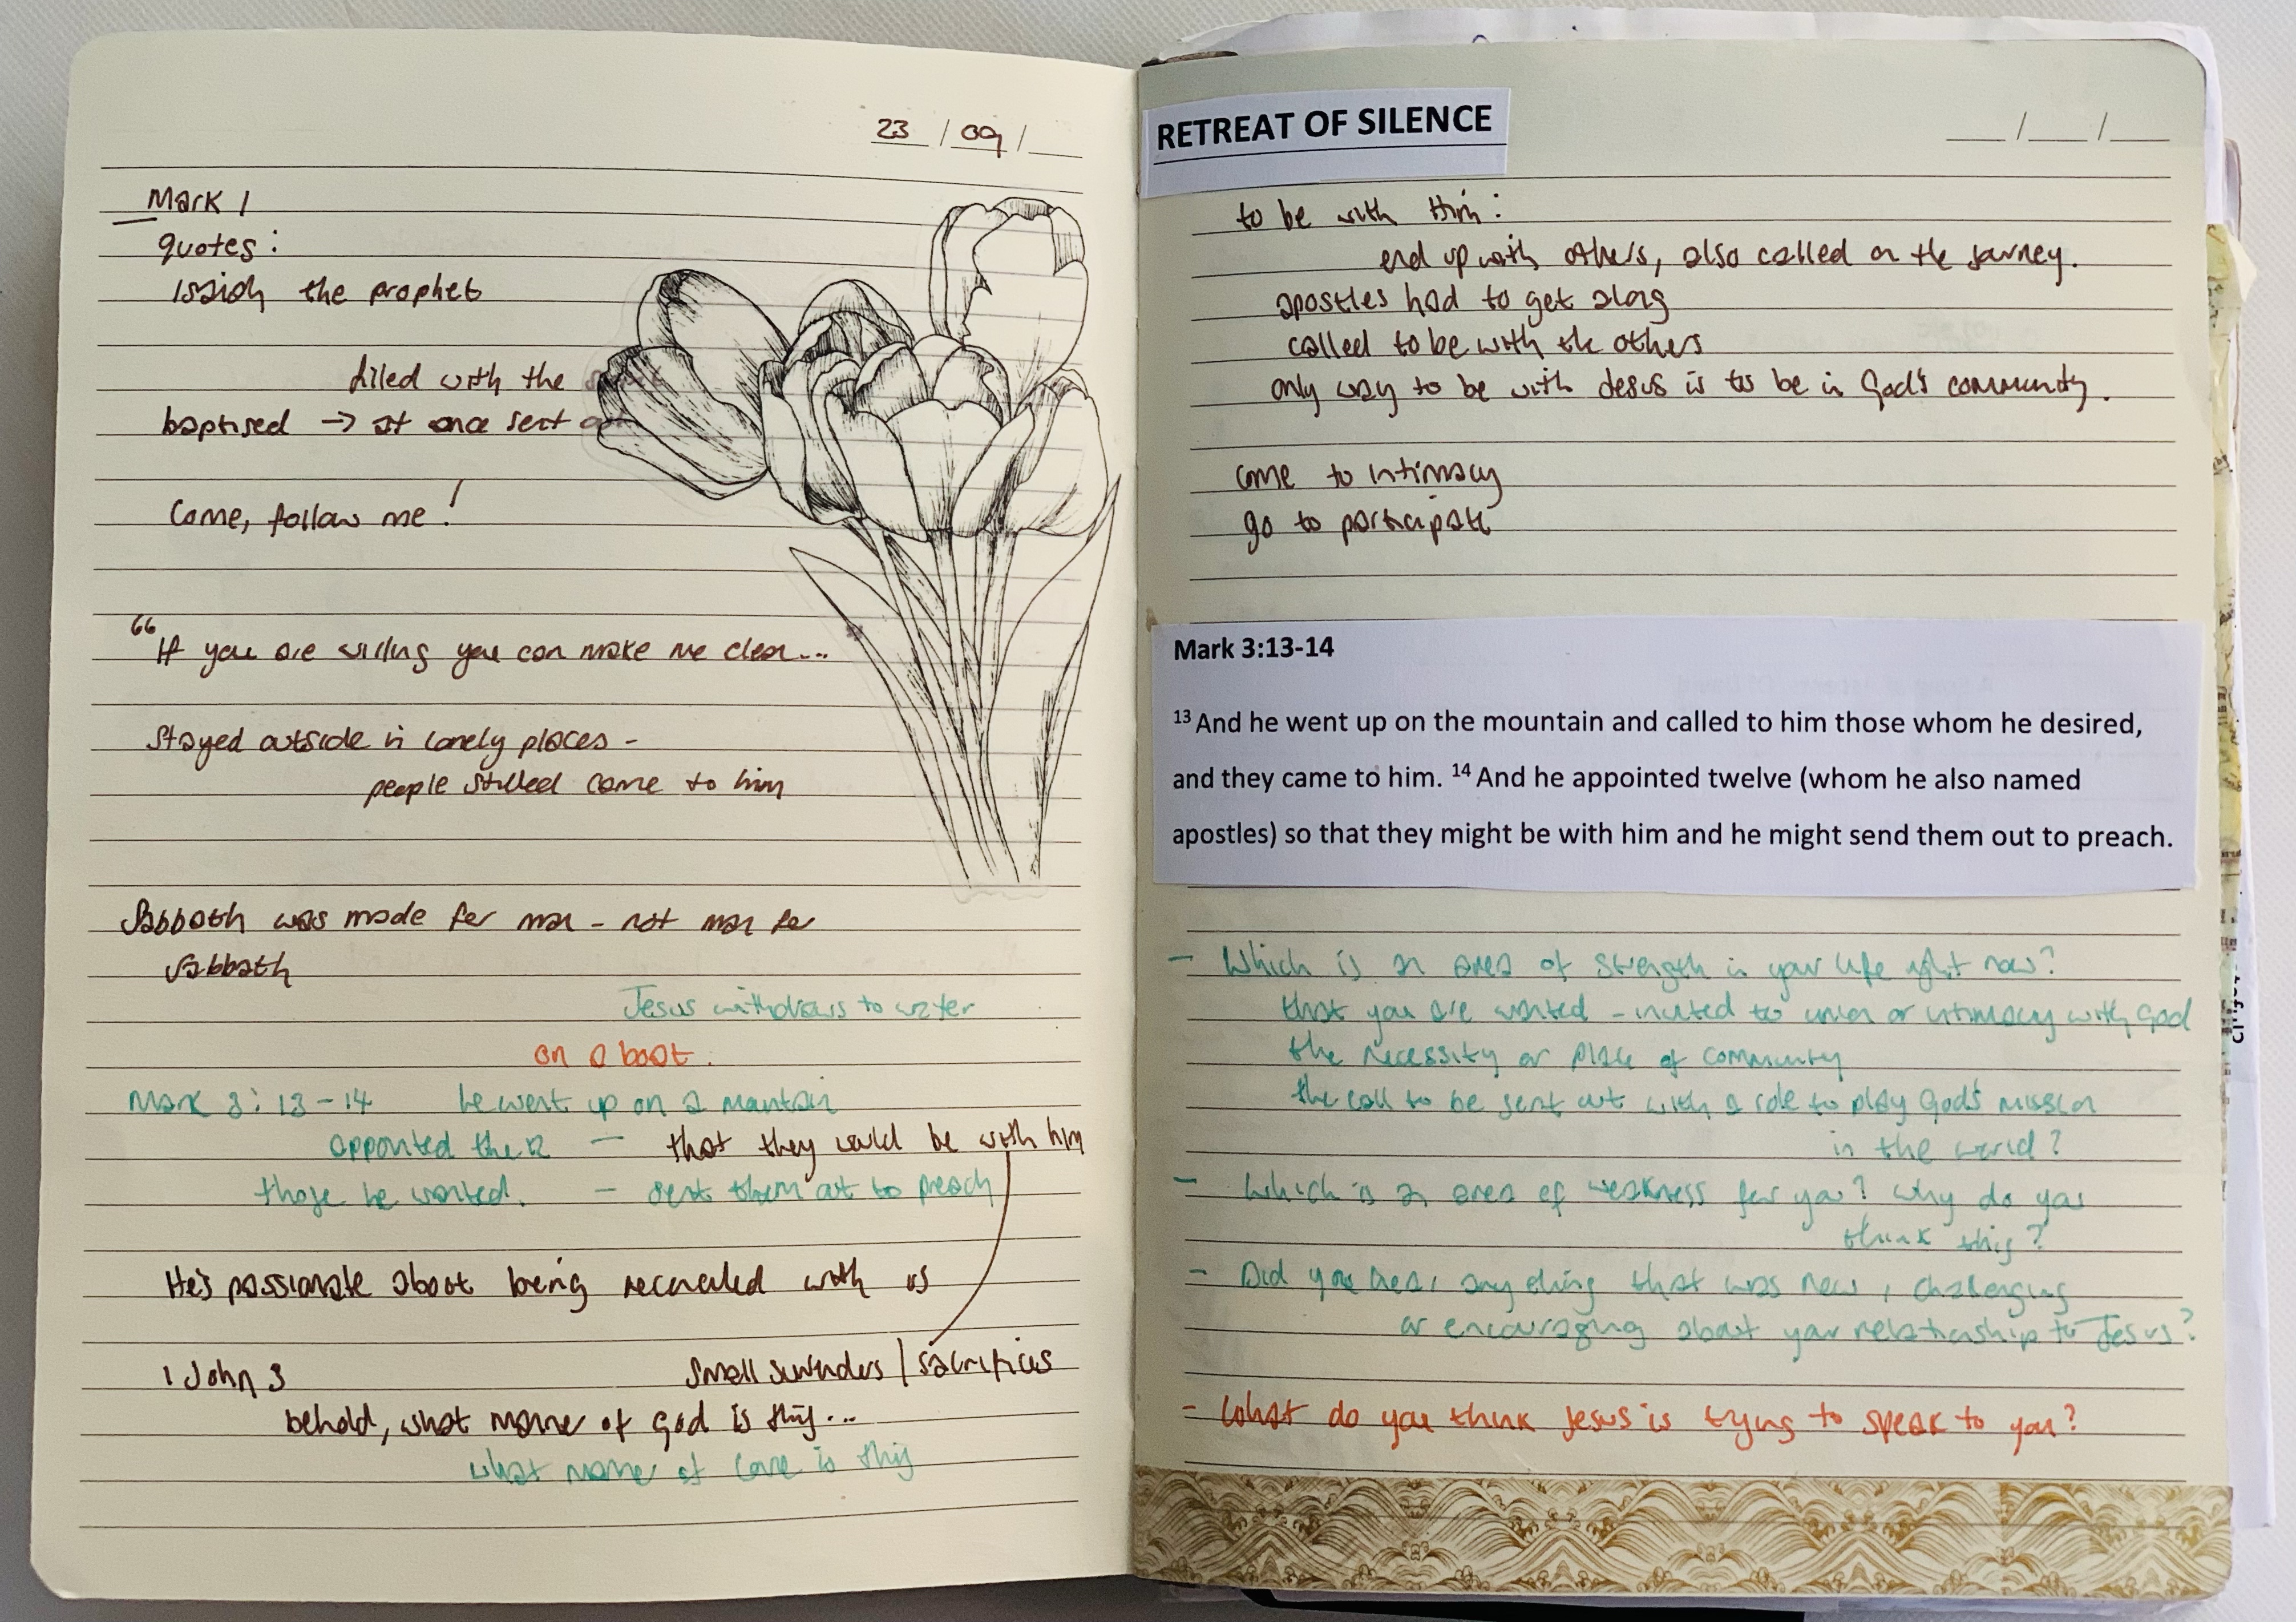 23 / 09 /
Mark 1
quotes:
Isaiah the prophet
filled with the
baptised → at once sent
Come, follow me!
"If you are willing you can make me clean...
Stayed outside in lonely places -
people stilled came to him
Sabbath was made for man - not man for
Sabbath
Jesus withdraws to water
on a boat.
Mark 3:13-14 he went up on a mountain
appointed the 12 — that they would be with him
those he wanted. — sent them out to preach
He's passionate about being reconciled with us
1 John 3 Small surrenders / sacrifices
behold, what manner of God is this...
what manner of love is this
RETREAT OF SILENCE
/ /
to be with Him:
end up with others, also called on the journey.
apostles had to get along
called to be with the others
only way to be with Jesus is to be in God's community.
come to intimacy
go to participate
Mark 3:13-14
13 And he went up on the mountain and called to him those whom he desired,
and they came to him. 14 And he appointed twelve (whom he also named
apostles) so that they might be with him and he might send them out to preach.
- Which is an area of strength in your life right now?
that you are wanted - invited to union or intimacy with God
the necessity or place of community
the call to be sent out with a role to play God's mission
in the world?
- Which is an area of weakness for you? Why do you
think this?
- Did you hear anything that was new, challenging
or encouraging about your relationship to Jesus?
- What do you think Jesus is trying to speak to you?